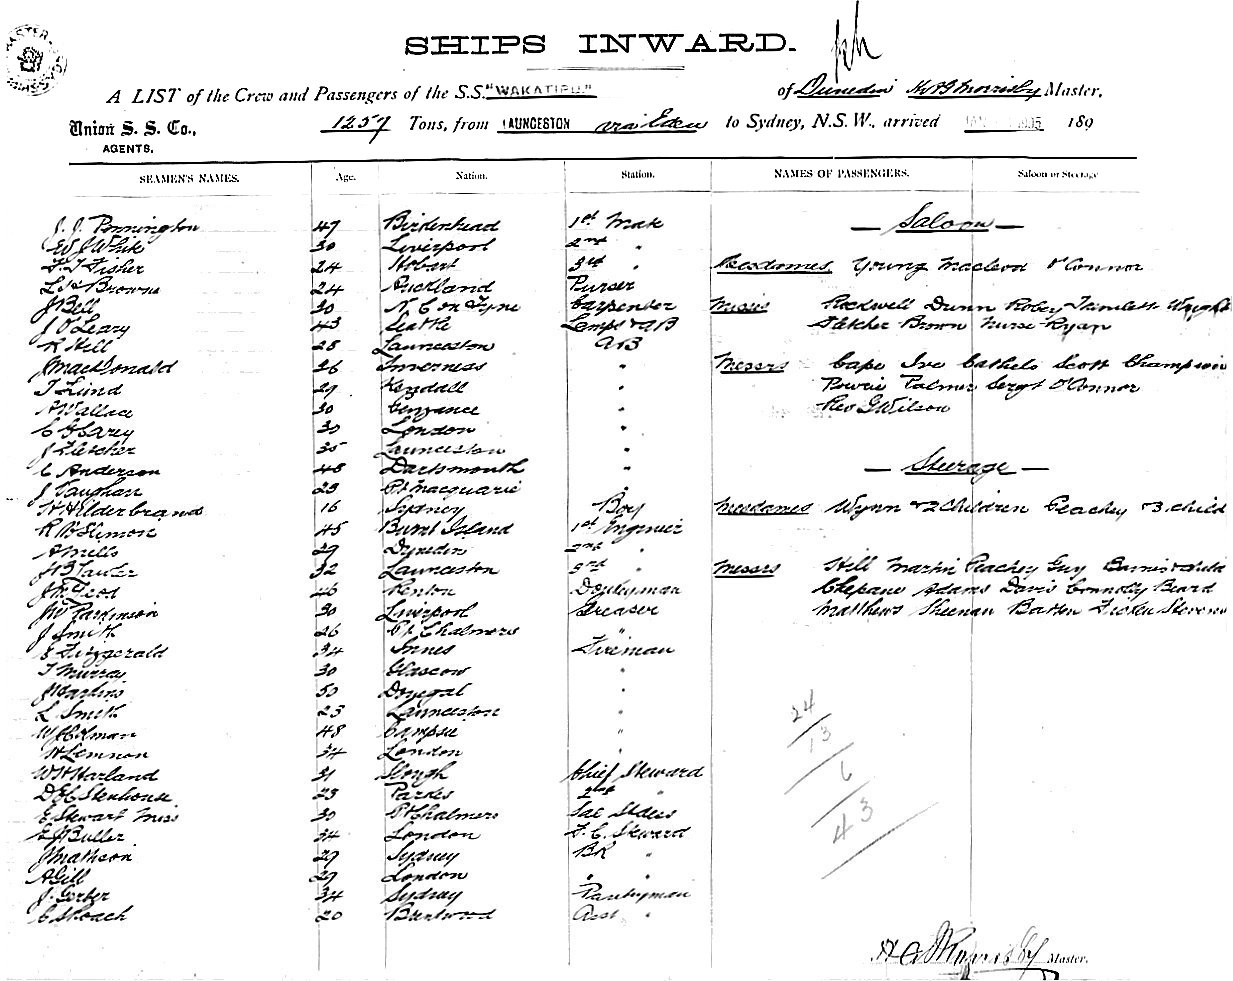 SHIPS INWARD.
A LIST of the Crew and Passengers of the S.S. "WAKATIPU." of Dunedin Master,
Union S. S. Co., 1257 Tons, from LAUNCESTON via Eden to Sydney, N.S.W., arrived 189
AGENTS.
SEAMEN'S NAMES. Age. Nation. Station. NAMES OF PASSENGERS. Saloon or Steerage
J. J. Pennington 47 Birkenhead 1st Mate
— Saloon —
W J White 30 Liverpool 2nd "
F. J Fisher 24 Hobart 3rd "
Mesdames Young Macleod O'Connor
Browne 24 Auckland Purser
J Bell 30 N. C on Tyne Carpender
Misses Rockwell Dunn Robey Wright
J O'Leary 43 Seattle Lamps & AB
Fletcher Brown Nurse Ryan
R Hill 28 Launceston AB
J MacDonald 26 Inverness "
Messrs Cape Ive Scott Champion
T Lund 29 Kendall "
Powrie Palmer Sergt O'Connor
A Wallace 30 Penzance "
Rev G Wilson
Carey 30 London "
J Fletcher 35 Launceston "
C Anderson 48 Dartsmouth "
— Steerage —
J Vaughan 23 Pt Macquarie "
H Hilderbrand 16 Sydney Boy
Mesdames Wynn & 2 Children Peachey & 3 child
R McSlimon 45 Burnt Island 1st Engineer
A Mills 29 Dunedin 2nd "
32 Launceston 3rd "
Messrs Hill Martin Peachey Guy
46 Renton Donkeyman
Adams Davis Connolly Beard
J W Parkinson 30 Liverpool Greaser
Matthews Sheenan Batten Stevens
J Smith 26 Pt Chalmers "
Fitzgerald 34 Innes Fireman
T Murray 30 Glascow "
50 Donegal "
L Smith 23 Launceston "
48 Campsie "
24
H Lemmon 34 London "
13
W H Harland 31 Slough Chief Steward
6
Stenhouse 23 Parkes 2nd "
E Stewart Miss 30 Pt Chalmers Sal Stdess
43
Buller 34 London F. C. Steward
J Matheson 29 Sydney BR "
A Gill 29 London " "
J. Gerber 34 Sydney Pantryman
C S Roach 20 Brentwood Asst "
Master.